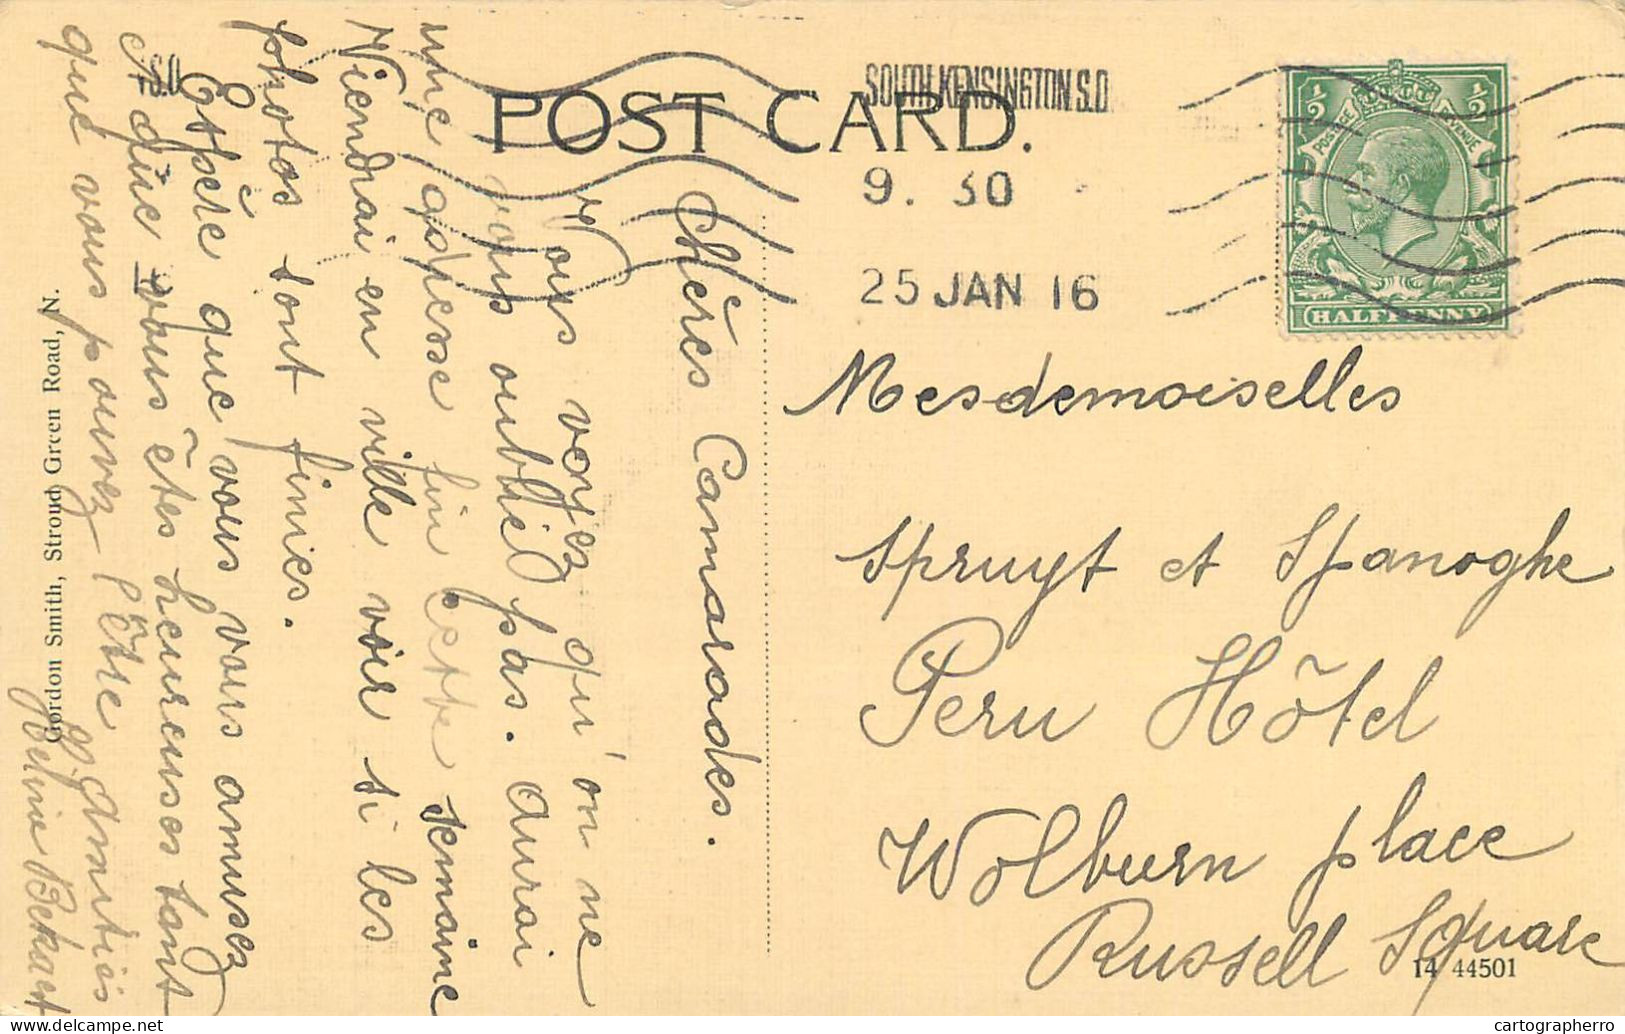 POST CARD.
SOUTH KENSINGTON S.O
9. 30
25 JAN 16
S.O
½ ½
POSTAGE REVENUE
HALFPENNY
Mesdemoiselles
Spruyt et Spanoghe
Peru Hôtel
Wolburn place
Russell Square
14 44501
Chères Camarades.
Vous voyez qu'on ne
vous oublie pas. Aurai
une adresse fin cette semaine
Viendrai en ville voir si les
photos sont finies.
Espère que vous vous amusez
A que vous êtes heureuses tant
que vous pouvez l'être
Amitiés
Bekaert
Gordon Smith, Stroud Green Road, N.
cartographerro cartographerro.com